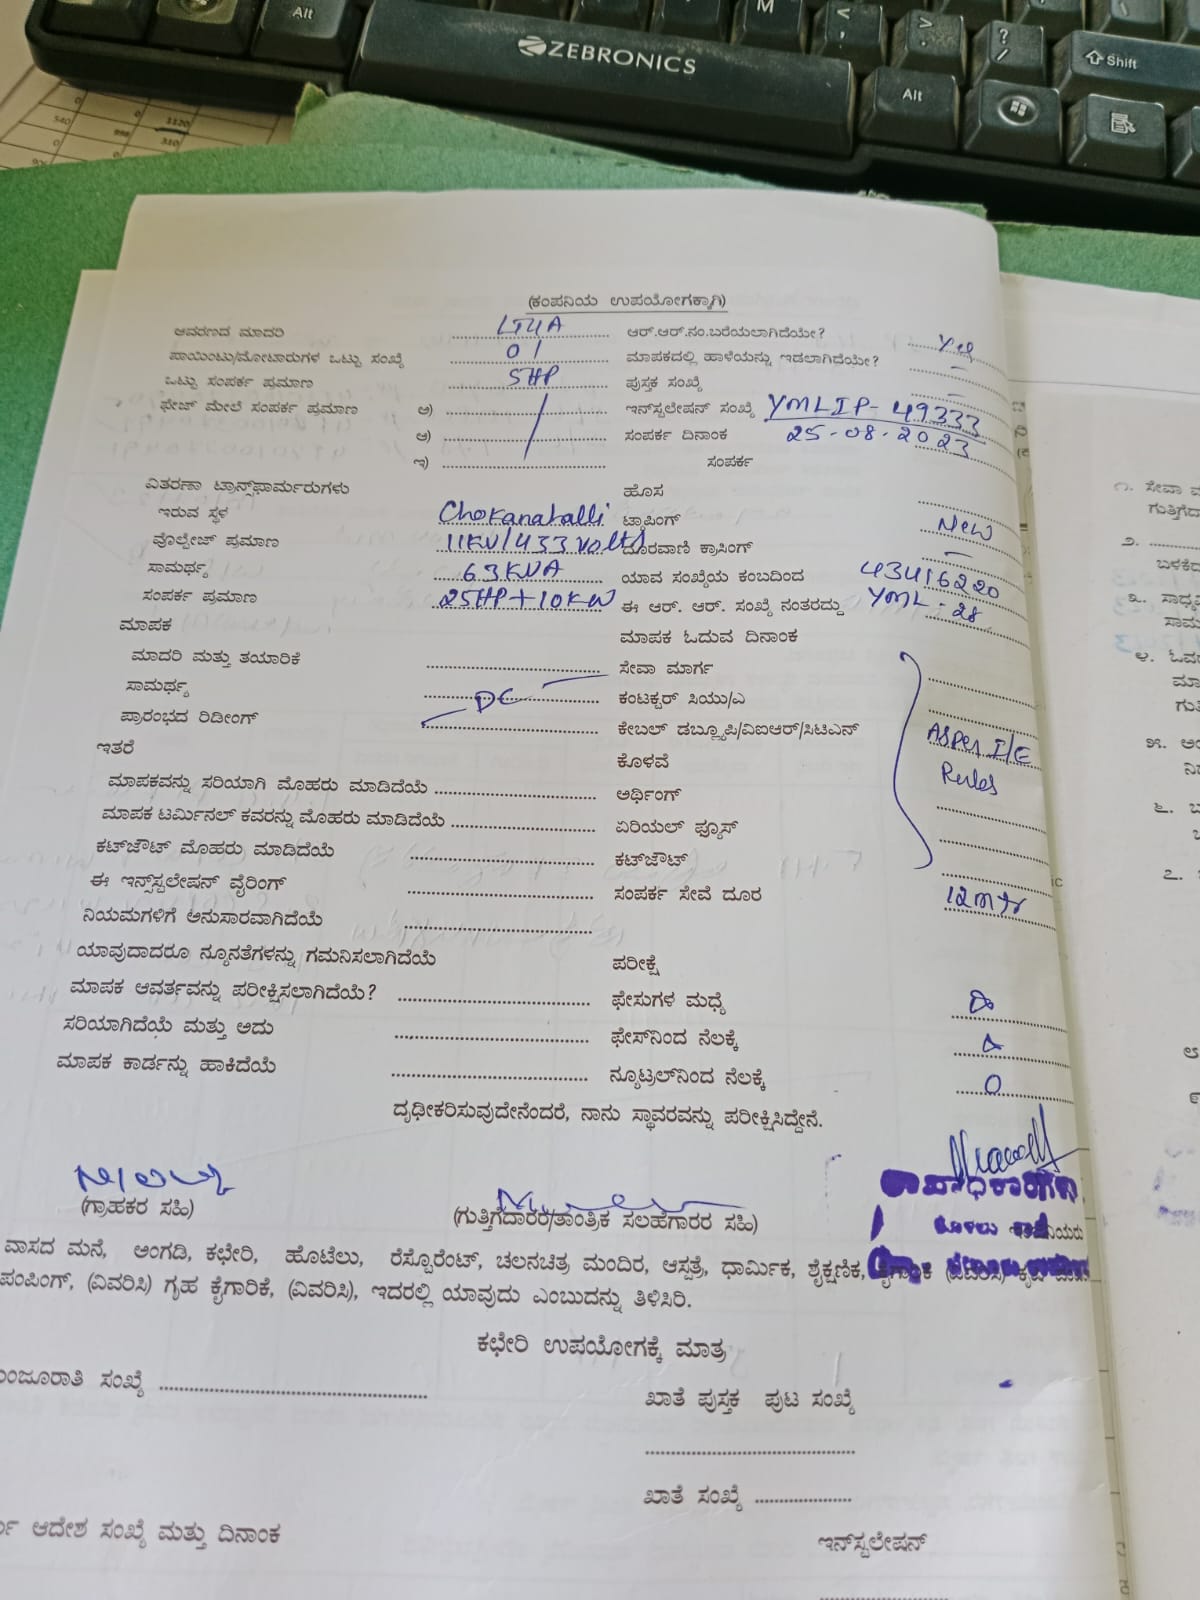 Alt
ZEBRONICS
M
<
,
>
.
?
/
Shift
Alt
(ಕಂಪನಿಯ ಉಪಯೋಗಕ್ಕಾಗಿ)
ಆವರಣದ ಮಾದರಿ LT4A ಆರ್.ಆರ್.ನಂ.ಬರೆಯಲಾಗಿದೆಯೇ? Yes
ಪಾಯಿಂಟು/ಮೋಟಾರುಗಳ ಒಟ್ಟು ಸಂಖ್ಯೆ 01 ಮಾಪಕದಲ್ಲಿ ಹಾಳೆಯನ್ನು ಇಡಲಾಗಿದೆಯೇ? –
ಒಟ್ಟು ಸಂಪರ್ಕ ಪ್ರಮಾಣ 5HP ಪುಸ್ತಕ ಸಂಖ್ಯೆ –
ಫೇಜ್ ಮೇಲೆ ಸಂಪರ್ಕ ಪ್ರಮಾಣ ಅ) ಇನ್‌ಸ್ಟಲೇಷನ್ ಸಂಖ್ಯೆ YMLIP-49333
ಆ) ಸಂಪರ್ಕ ದಿನಾಂಕ 25-08-2023
ಇ) ಸಂಪರ್ಕ
ವಿತರಣಾ ಟ್ರಾನ್ಸ್‌ಫಾರ್ಮರುಗಳು ಹೊಸ
ಇರುವ ಸ್ಥಳ Chokanahalli ಟ್ಯಾಪಿಂಗ್ New
ವೊಲ್ಟೇಜ್ ಪ್ರಮಾಣ 11KV/433 volts ದೂರವಾಣಿ ಕ್ರಾಸಿಂಗ್ –
ಸಾಮರ್ಥ್ಯ 63KVA ಯಾವ ಸಂಖ್ಯೆಯ ಕಂಬದಿಂದ 43416220
ಸಂಪರ್ಕ ಪ್ರಮಾಣ 25HP+10KW ಈ ಆರ್. ಆರ್. ಸಂಖ್ಯೆ ನಂತರದ್ದು YML-28
ಮಾಪಕ ಮಾಪಕ ಓದುವ ದಿನಾಂಕ
ಮಾದರಿ ಮತ್ತು ತಯಾರಿಕೆ ಸೇವಾ ಮಾರ್ಗ
ಸಾಮರ್ಥ್ಯ DC ಕಂಟಕ್ಟರ್ ಸಿಯು/ಎ
ಪ್ರಾರಂಭದ ರಿಡೀಂಗ್ ಕೇಬಲ್ ಡಬ್ಲ್ಯೂಪಿ/ವಿಐಆರ್/ಸಿಟಿಎನ್ Asper I/E
ಇತರೆ ಕೊಳವೆ Rules
ಮಾಪಕವನ್ನು ಸರಿಯಾಗಿ ಮೊಹರು ಮಾಡಿದೆಯೆ ಅರ್ಥಿಂಗ್
ಮಾಪಕ ಟರ್ಮಿನಲ್ ಕವರನ್ನು ಮೊಹರು ಮಾಡಿದೆಯೆ ಏರಿಯಲ್ ಫ್ಯೂಸ್
ಕಟ್‌ಔಟ್ ಮೊಹರು ಮಾಡಿದೆಯೆ ಕಟ್‌ಔಟ್
ಈ ಇನ್ಸ್‌ಸ್ಟಲೇಷನ್ ವೈರಿಂಗ್ ಸಂಪರ್ಕ ಸೇವೆ ದೂರ 12mtr
ನಿಯಮಗಳಿಗೆ ಅನುಸಾರವಾಗಿದೆಯೆ
ಯಾವುದಾದರೂ ನ್ಯೂನತೆಗಳನ್ನು ಗಮನಿಸಲಾಗಿದೆಯೆ ಪರೀಕ್ಷೆ
ಮಾಪಕ ಆವರ್ತವನ್ನು ಪರೀಕ್ಷಿಸಲಾಗಿದೆಯೆ? ಫೇಸುಗಳ ಮಧ್ಯೆ
ಸರಿಯಾಗಿದೆಯೆ ಮತ್ತು ಅದು ಫೇಸ್‌ನಿಂದ ನೆಲಕ್ಕೆ
ಮಾಪಕ ಕಾರ್ಡನ್ನು ಹಾಕಿದೆಯೆ ನ್ಯೂಟ್ರಲ್‌ನಿಂದ ನೆಲಕ್ಕೆ 0
ದೃಢೀಕರಿಸುವುದೇನೆಂದರೆ, ನಾನು ಸ್ಥಾವರವನ್ನು ಪರೀಕ್ಷಿಸಿದ್ದೇನೆ.
(ಗ್ರಾಹಕರ ಸಹಿ) (ಗುತ್ತಿಗೆದಾರರ/ತಾಂತ್ರಿಕ ಸಲಹೆಗಾರರ ಸಹಿ)
ವಾಸದ ಮನೆ, ಅಂಗಡಿ, ಕಛೇರಿ, ಹೊಟೆಲು, ರೆಸ್ಟೊರೆಂಟ್, ಚಲನಚಿತ್ರ ಮಂದಿರ, ಆಸ್ಪತ್ರೆ, ಧಾರ್ಮಿಕ, ಶೈಕ್ಷಣಿಕ,
ಪಂಪಿಂಗ್, (ವಿವರಿಸಿ) ಗೃಹ ಕೈಗಾರಿಕೆ, (ವಿವರಿಸಿ), ಇದರಲ್ಲಿ ಯಾವುದು ಎಂಬುದನ್ನು ತಿಳಿಸಿರಿ.
ಕಛೇರಿ ಉಪಯೋಗಕ್ಕೆ ಮಾತ್ರ
ಸಂಖ್ಯೆ ಖಾತೆ ಪುಸ್ತಕ ಪುಟ ಸಂಖ್ಯೆ
ಖಾತೆ ಸಂಖ್ಯೆ
ಆದೇಶ ಸಂಖ್ಯೆ ಮತ್ತು ದಿನಾಂಕ ಇನ್‌ಸ್ಟಲೇಷನ್